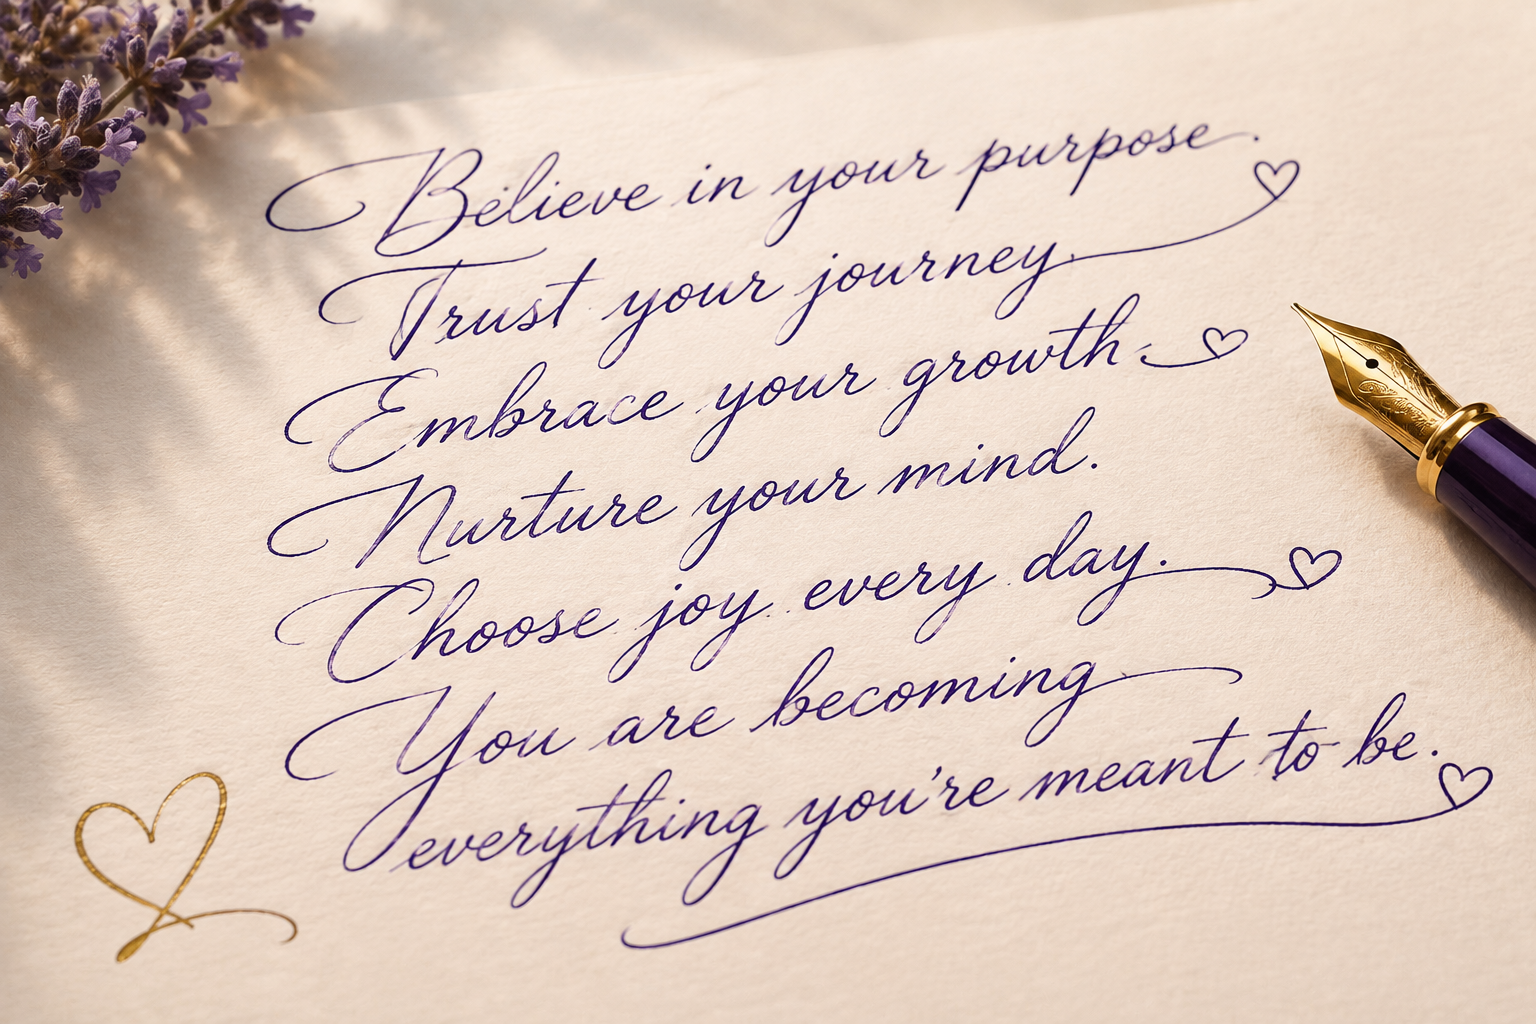 Believe in your purpose.
Trust your journey.
Embrace your growth.
Nurture your mind.
Choose joy every day.
You are becoming
everything you're meant to be.